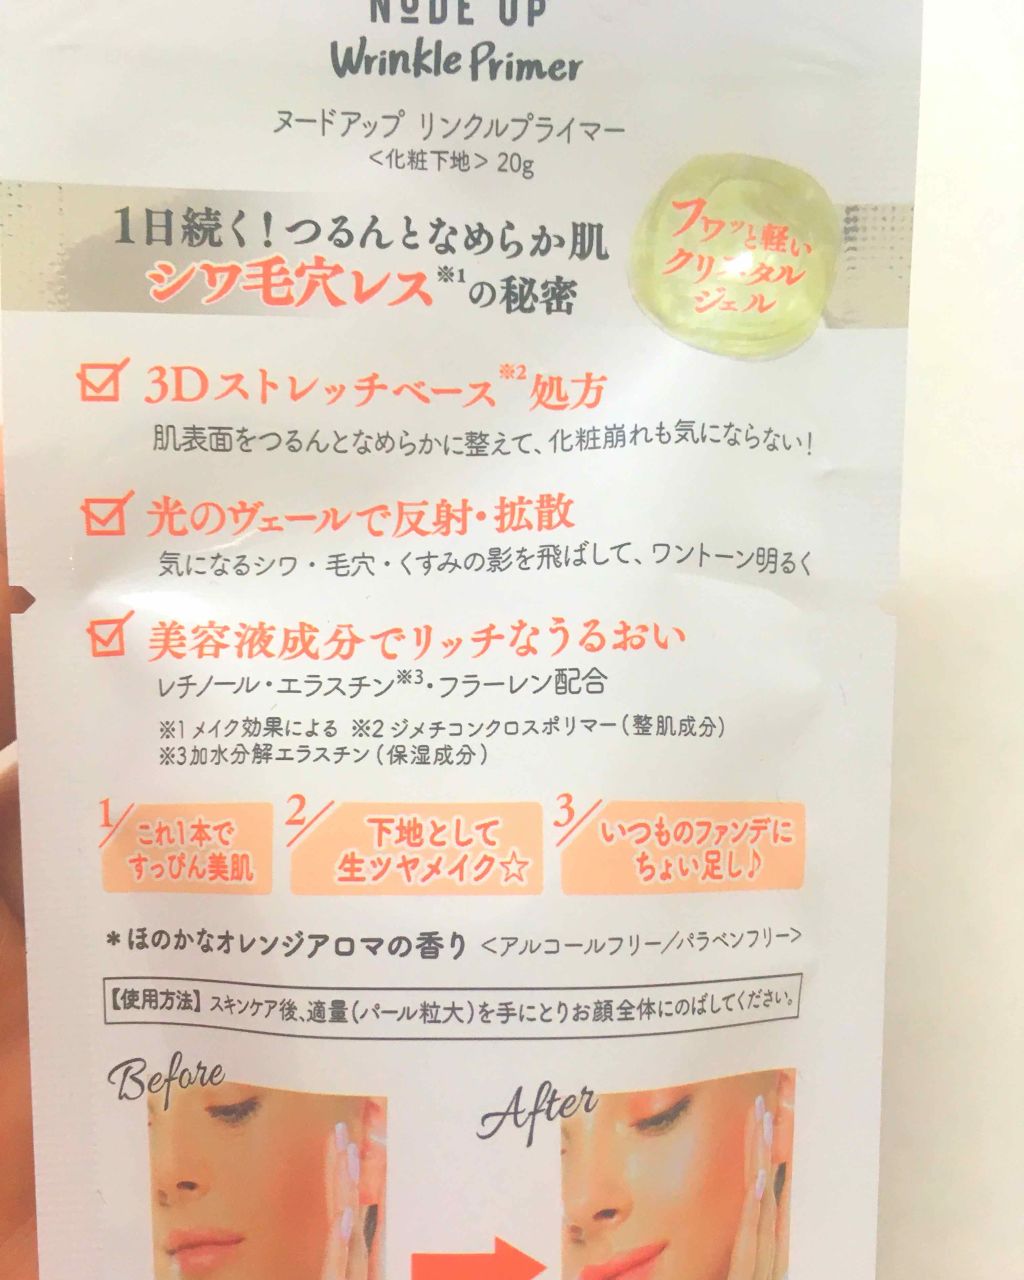 NUDE UP
Wrinkle Primer
ヌードアップ リンクルプライマー
<化粧下地> 20g
1日続く！つるんとなめらか肌
シワ毛穴レス※1の秘密
フワッと軽い
クリスタル
ジェル
3Dストレッチベース※2処方
肌表面をつるんとなめらかに整えて、化粧崩れも気にならない！
光のヴェールで反射・拡散
気になるシワ・毛穴・くすみの影を飛ばして、ワントーン明るく
美容液成分でリッチなうるおい
レチノール・エラスチン※3・フラーレン配合
※1 メイク効果による ※2 ジメチコンクロスポリマー（整肌成分）
※3 加水分解エラスチン（保湿成分）
1/ これ1本で
すっぴん美肌
2/ 下地として
生ツヤメイク☆
3/ いつものファンデに
ちょい足し♪
*ほのかなオレンジアロマの香り <アルコールフリー/パラベンフリー>
【使用方法】スキンケア後、適量(パール粒大)を手にとりお顔全体にのばしてください。
Before
After